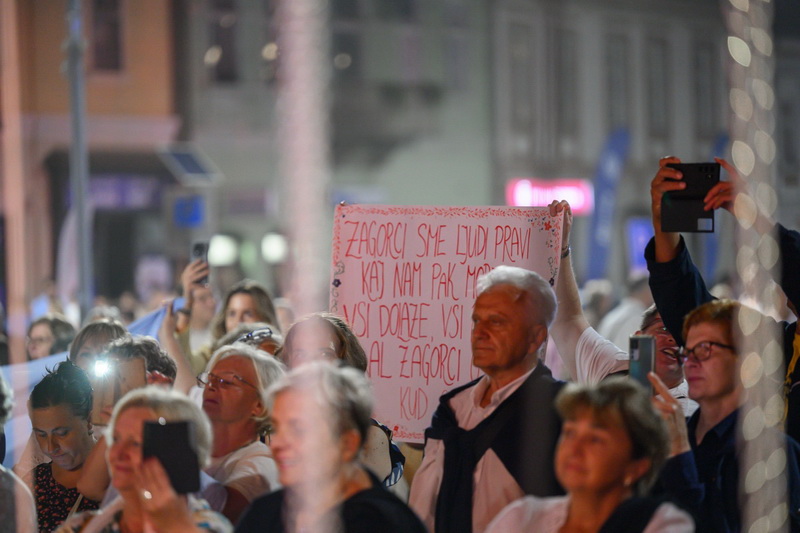 ZAGORCI SME LJUDI PRAVI
KAJ NAM PAK
VSI DOLAZE, VSI
ŽAGORCI
KUD